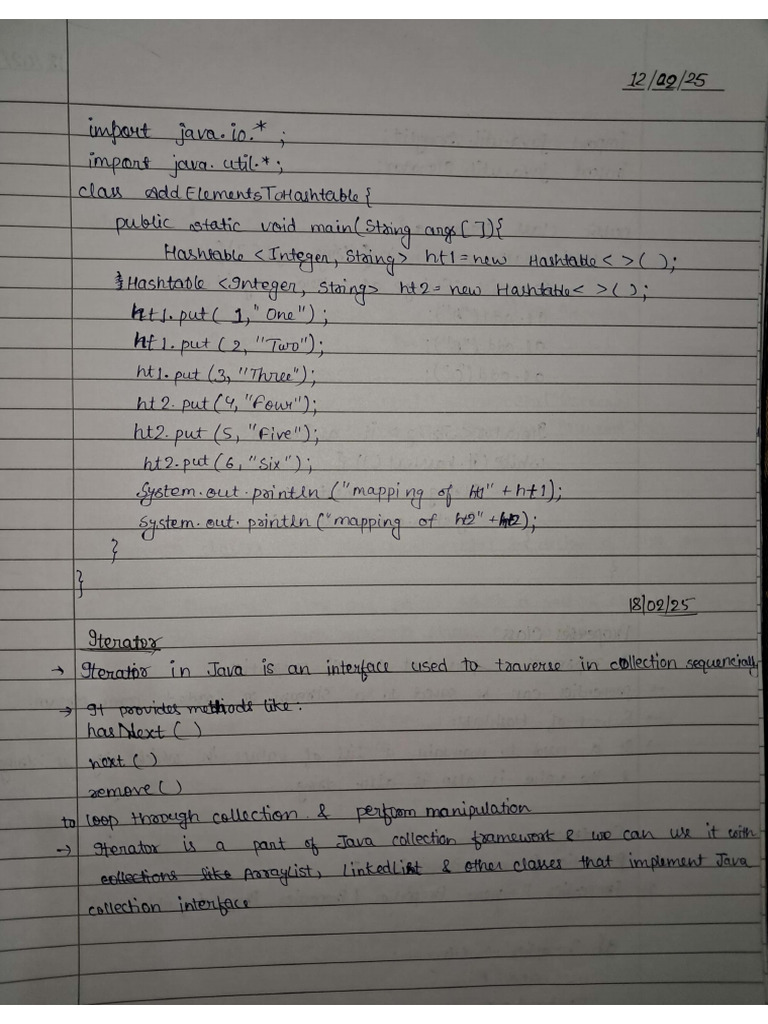 12/02/25
import java.io.*;
import java.util.*;
class AddElementsToHashtable{
public static void main(String args[]){
Hashtable <Integer, String> ht1 = new Hashtable< >( );
Hashtable <Integer, String> ht2 = new Hashtable< >( );
ht1.put( 1, "One");
ht1.put (2, "Two");
ht1.put (3, "Three");
ht2.put (4, "Four");
ht2.put (5, "Five");
ht2.put (6, "Six");
System.out.println ("mapping of ht1" + ht1);
System.out.println ("mapping of ht2" + ht2);
}
}
18/02/25
Iterator
→ Iterator in Java is an interface used to traverse in collection sequencially
→ It provides methods like:
hasNext ( )
next ( )
remove ( )
to loop through collection & perform manipulation
→ Iterator is a part of Java collection framework & we can use it with
collections like ArrayList, LinkedList & other classes that implement Java
collection interface